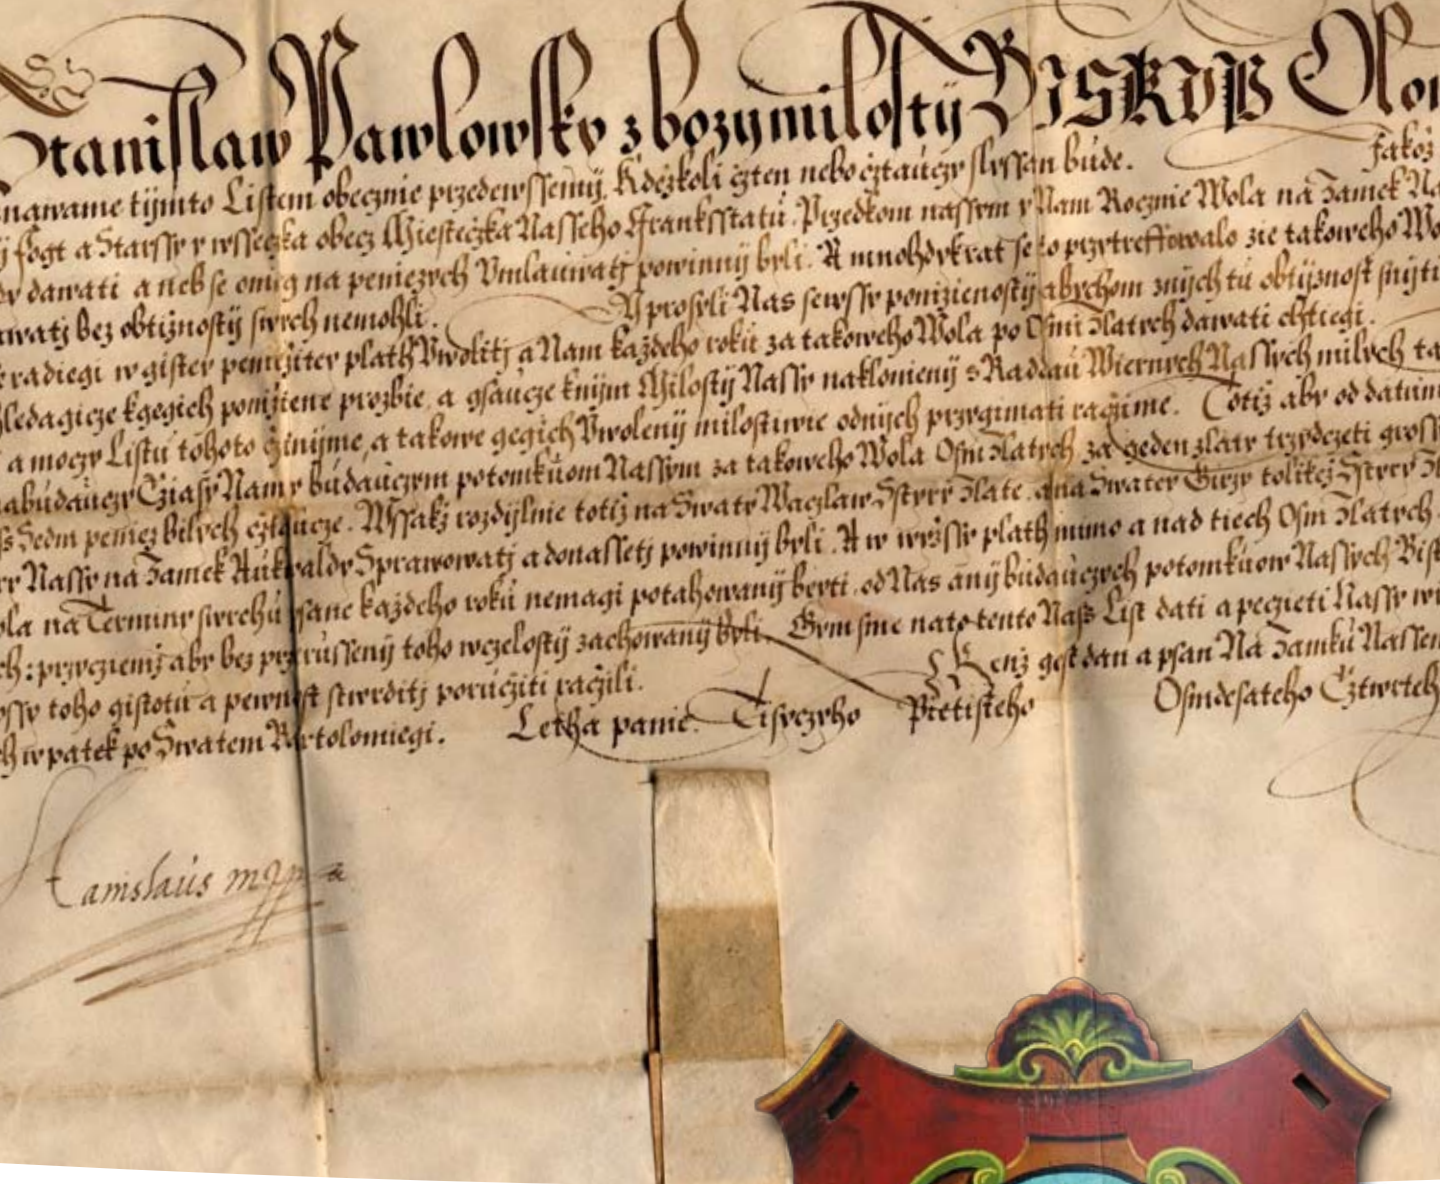 Stanislaw Pawlowsky z bozy milosty BISKVP Olom
znawame tijmto Listem obecznie przedewssemij. Kdezkoli cżten nebo cżtauczy slyssan bude. Jakoż
ij fogt a Starssy y wsseczka obecz Miesteczka Nasseho Franksstatu. Przedkom nassym y Nam Rocznie Wola na Zamek Na
dy dawati a neb se oń na peniezych Vmlauwatj powinnij byli. A mnohdykrat se to przytreffowalo zie takoweho Wo
awatj bez obtiżnostij swych nemohli. Y prosyli Nas sewssy ponizienostij abychom znijch tu obtijżnost snijti
radiegi w gister penieziter plath Vwolitj a Nam każdeho roku za takoweho Wola po Osmi Zlatych dawati chtiegi.
hledagicze k gegich ponijżene prozbie, a gsaucze knijm Milostij Nassy naklonienij s Raddau Wiernych Nassych milych ta
a moczy Listu tohoto cżinijme, a takowe gegich Vwolenij milostiwie odnijch przygimati racżime. Totiż aby od datum
budauczy Cżiasy Nam y budauczym potomkuom Nassym za takoweho Wola Osm Zlatych za geden zlaty trzydczeti gross
Sedm peniez bilych cżtaucze. Wssakż rozdijlnie totiż na Swaty Waczlaw Sstyry Zlate. a na Swateho Girzy tolikeż Sstyry Zl
Nassy na Zamek Hukwaldy Sprawowatj a donassetj powinnij byli. A w wyżssy plath mimo a nad tiech Osm Zlatych
ola na Terminy swrchu psane każdeho roku nemagi potahowanij beyti. od Nas anij budauczych potomkuow Nassych Bisk
ch: przycziemż aby bez przerussenij toho wczelostij zachowanij byli. Gym sme nato tento Naß List dati a peczieti Nassy wi
ossy toho gistotu a pewnost stwrditj porucżiti racżili. Genż gest dan a psan Na Zamku Nassem
ch w patek po Swatem Bartolomiegi. Letha panie. Tisyczyho Pietisteho Osmdesateho Cżtwrteh
Stanislaus mppa